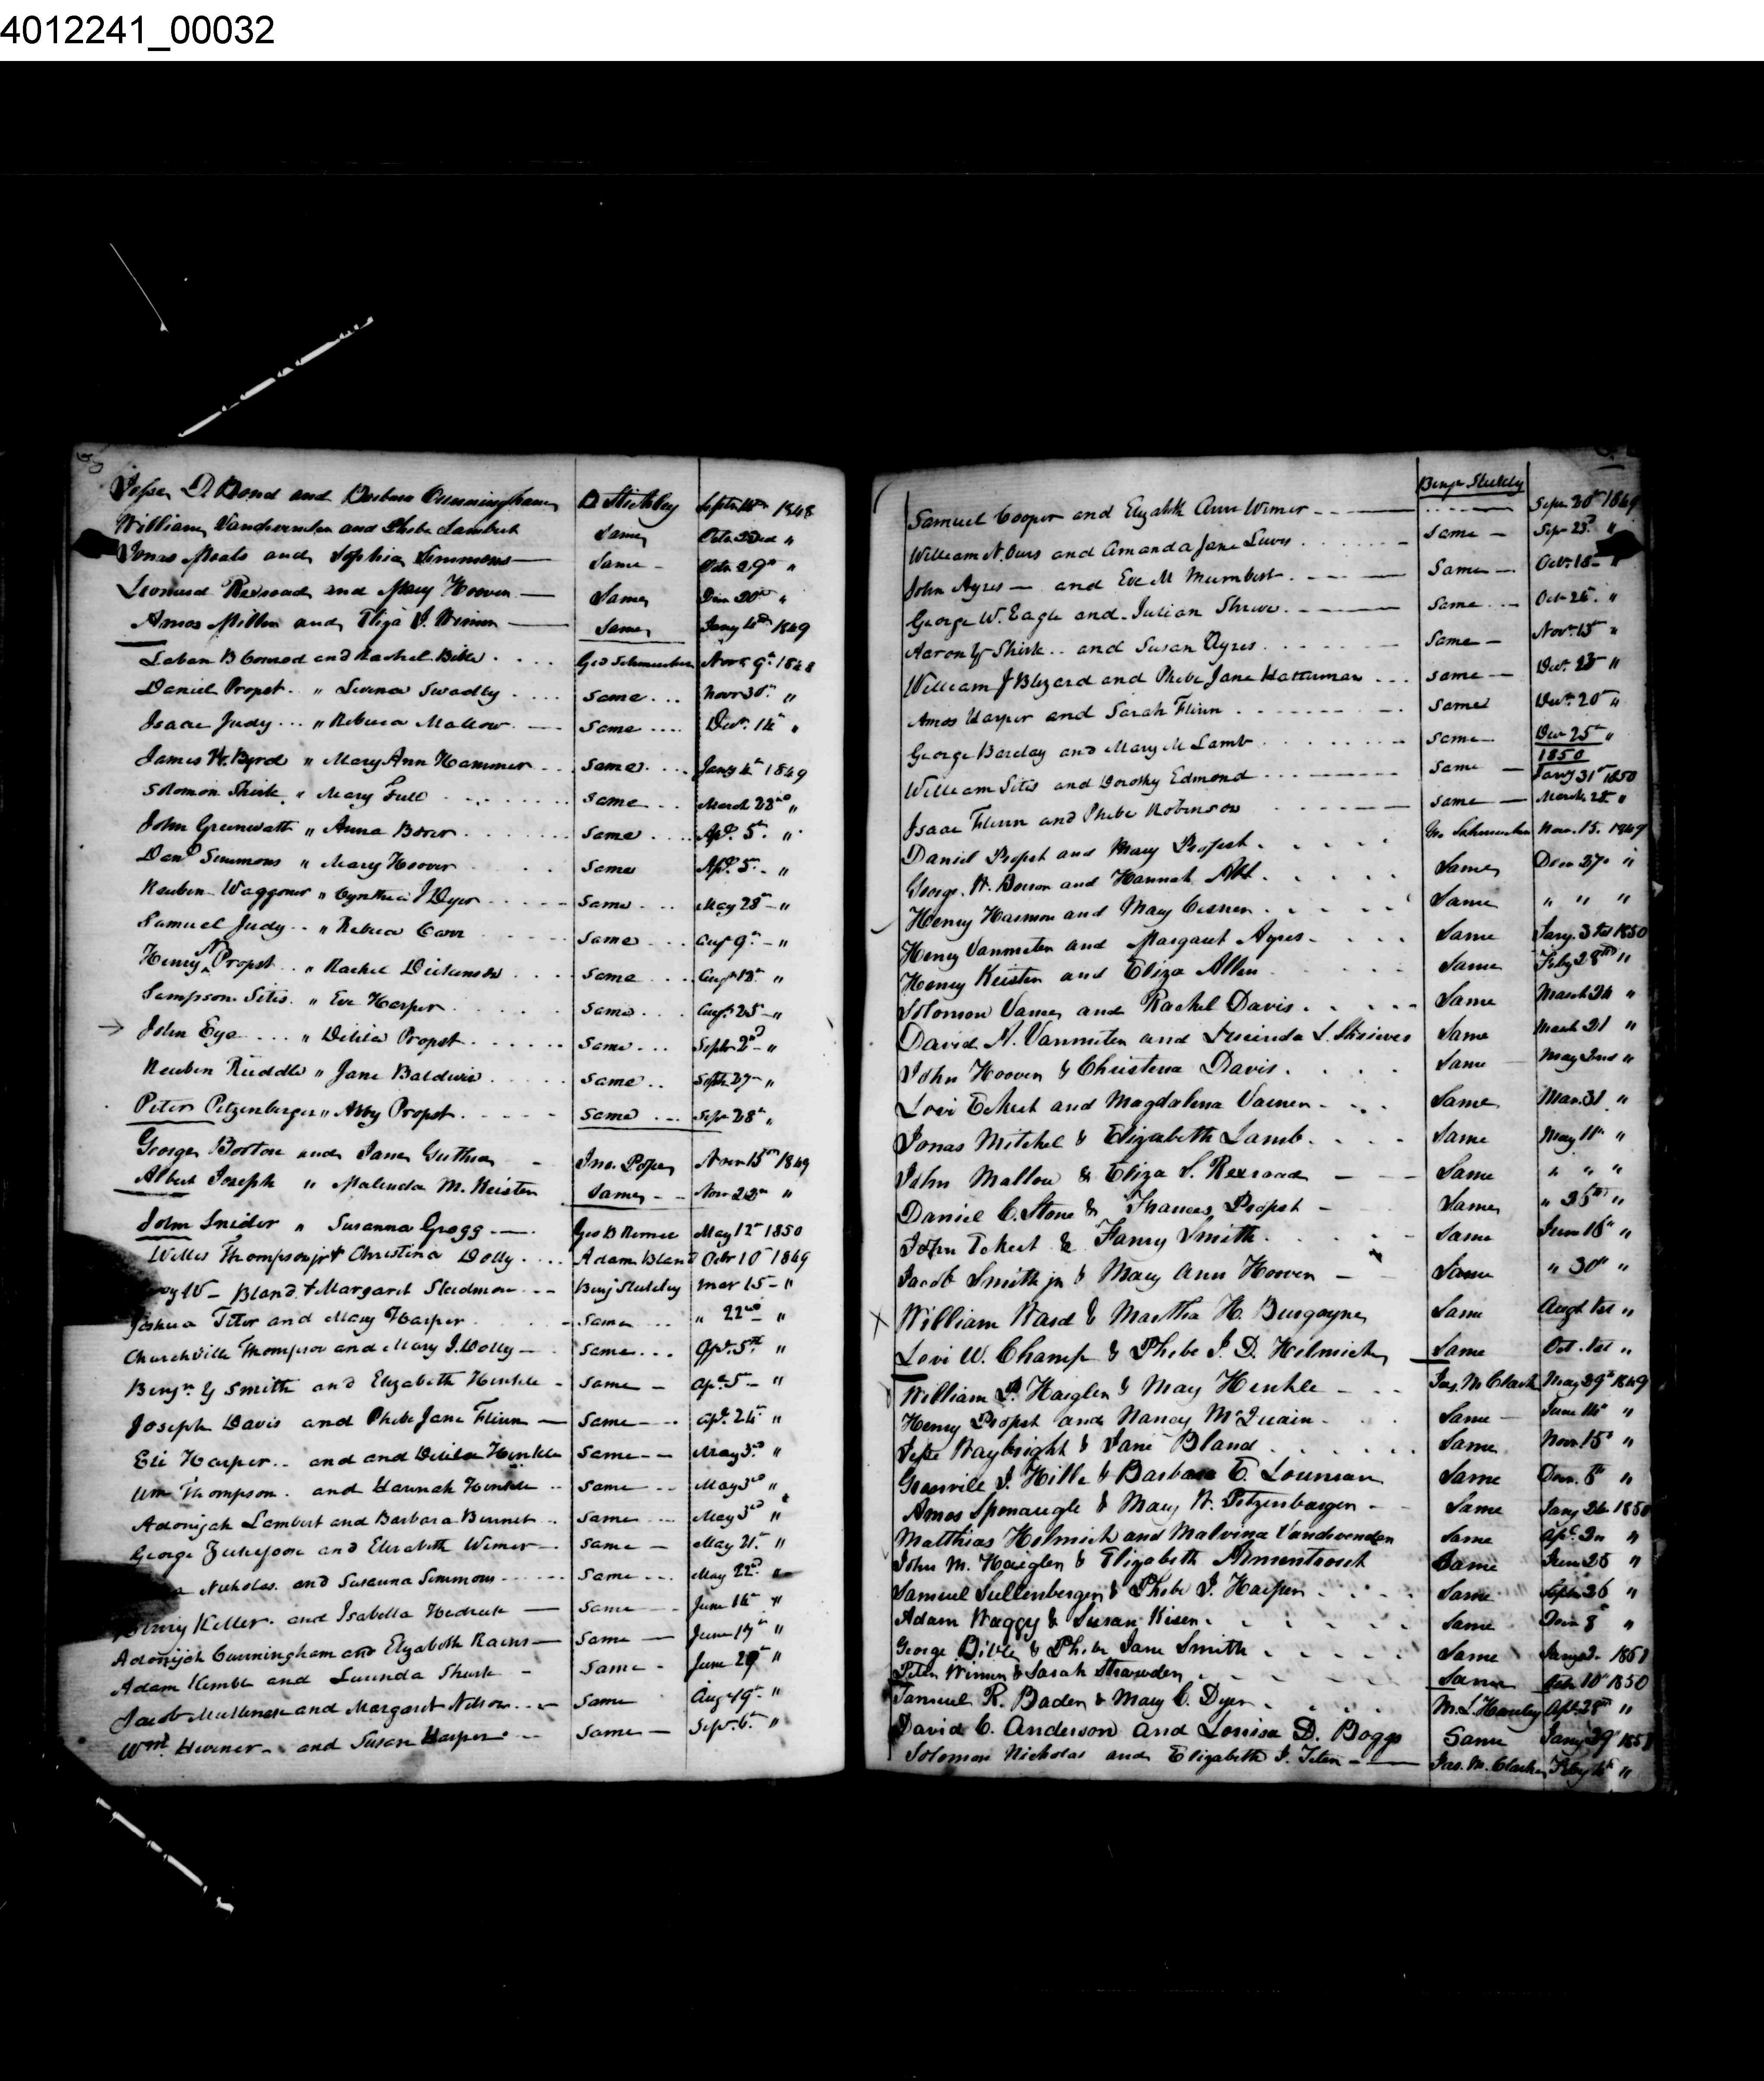 4012241_00032
Jesse D Bond and Barbara Cunningham B Stickley Septr 14th 1848
William Vandeventer and Phebe Lambert Same Octo 22nd "
Jonas Meals and Sophia Simmons Same Octo 29th "
Leonard Rexroad and Mary Hoover Same Decr 20th "
Amos Miller and Eliza J. Wimer Same Jany 1849
Laban B Conrad and Rachel Bible Geo Schmucker Novr 9th 1848
Daniel Propst " Levina Swadley same Novr 30th "
Isaac Judy " Rebecca Mallow same Decr. 14th "
James W. Byrd " Mary Ann Hammer same Jany 4th 1849
Solomon Shirk " Mary Full same March 22nd "
John Greenwatt " Anna Borer same Apl. 5th "
Danl Simmons " Mary Hoover same Apl. 5 "
Reuben Waggoner " Cynthia J Dyer same May 28 "
Samuel Judy " Rebecca Carr same Augt 9th "
Henry Propst " Rachel Dickenson same Augt 12th "
Sampson Sites " Eve Harper same Augt 25 "
John Eye " Delila Propst same Septr 2nd "
Reuben Ruddle " Jane Baldwin same Septr 27 "
Peter Pitzenberger " Abby Propst same Sepr 28th "
George Borton and Jane Guthrie Jno. Pope Novr 15th 1849
Albert Joseph " Malinda M. Keister Same Novr 22nd "
John Snider " Susanna Gragg Geo B May 12th 1850
Willis Thompson jr & Christina Dolly Adam Bland Octr 10th 1849
W Bland & Margaret Steadmon Benj Stickley Mar 15 "
Joshua Teter and Mary Harper same " 22nd "
Churchville Thompson and Mary J. Dolly same Apr. 5th "
Benjn Y Smith and Elizabeth Hinkle same Apl 5 "
Joseph Davis and Phebe Jane Flinn same Apl. 24th "
Eli Harper and and Delila Hinkle same May 3rd "
Wm Thompson and Hannah Hinkle same May 3rd "
Adonijah Lambert and Barbara Bennet same May 3rd "
George and Elizabeth Wimer same May 21st "
Nicholas and Susanna Simmons same May 22nd "
Henry Keller and Isabella Hedrick same June 14th "
Adonijah Cunningham and Elizabeth Rains same June 17th "
Adam Kimble and Lucinda Shirk same June 29th "
Jacob Mullenax and Margaret Nelson same Aug 19th "
Wm. Hevener and Susan Harper same Sept 6th "
Benjn Stickley
Samuel Cooper and Elizabeth Ann Wimer Sepr 20th 1849
William N. Ours and Amanda Jane Lewis same Sepr 23rd "
John Ayres and Eve M Mumbert same Octr 18 "
George W. Eagle and Julian Shreve same Octr 25 "
Aaron Y Shirk and Susan Ayres same Novr 15 "
William J Blizard and Phebe Jane Hatterman same Decr 23 "
Amos Harper and Sarah Flinn same Decr 20 "
George Barclay and Mary M Lamb same Decr 25th "
1850
William Sites and Dorothy Edmond same Jany 31st 1850
Isaac Flinn and Phebe Robinson same March 28 "
Daniel Propst and Mary Propst Geo Schmucker Novr. 15. 1849
George W. and Hannah Same Decr 27 "
Henry Harmon and Mary Same " " "
Henry Vanmeter and Margaret Ayres Same Jany. 3rd 1850
Henry Keister and Eliza Allen Same Feby 28th "
Solomon Varner and Rachel Davis Same March "
David Vanmeter and Lucinda S. Shrieves Same March 21 "
John Hoover & Christena Davis Same May 2nd "
Levi Eckert and Magdalena Varner Same Mar. 31 "
Jonas Mitchel & Elizabeth Lamb Same May 11th "
John Mallow & Eliza S. Rexroad Same " " "
Daniel C. Stone & Frances Propst Same " 25th "
John Eckert & Fanny Smith Same June 16th "
Jacob Smith jr & Mary Ann Hoover Same " 30th "
William Ward & Martha H. Burgoyne Same Augt 1st "
Levi W. Champ & Phebe J. D. Helmick Same Oct. 1st "
William P. Haigler & May Henkle Jas. M Clark May 29th 1849
Henry Propst and Nancy McQuain Same June 14th "
Jesse Waybright & Jane Bland Same Novr. 15th "
Granville J. Hille & Barbara E. Lounsan Same Decr. 6th "
Amos Sponaugle & Mary W. Pitzenbarger Same Jany 24 1850
Matthias Helmick and Malvina Vandevender Same Apl. 2n "
John M. Haigler & Elizabeth Armentrout Same June 25 "
Samuel Sullenberger & Phebe J. Harper Same Septr 26 "
Adam Waggy & Susan Kiser Same Decr 8th "
George Bible & Phebe Jane Smith Same Jany 2 1851
Peter Wimer & Sarah Strawder Same Octr 10th 1850
Samuel R. Baden & Mary C. Dyer M. L. Hawley Apl. 25th "
David C. Anderson and Louisa D. Boggs Same Jany 29th 1851
Solomon Nicholas and Elizabeth J. Teter Jas. M. Clark Feby 4th "